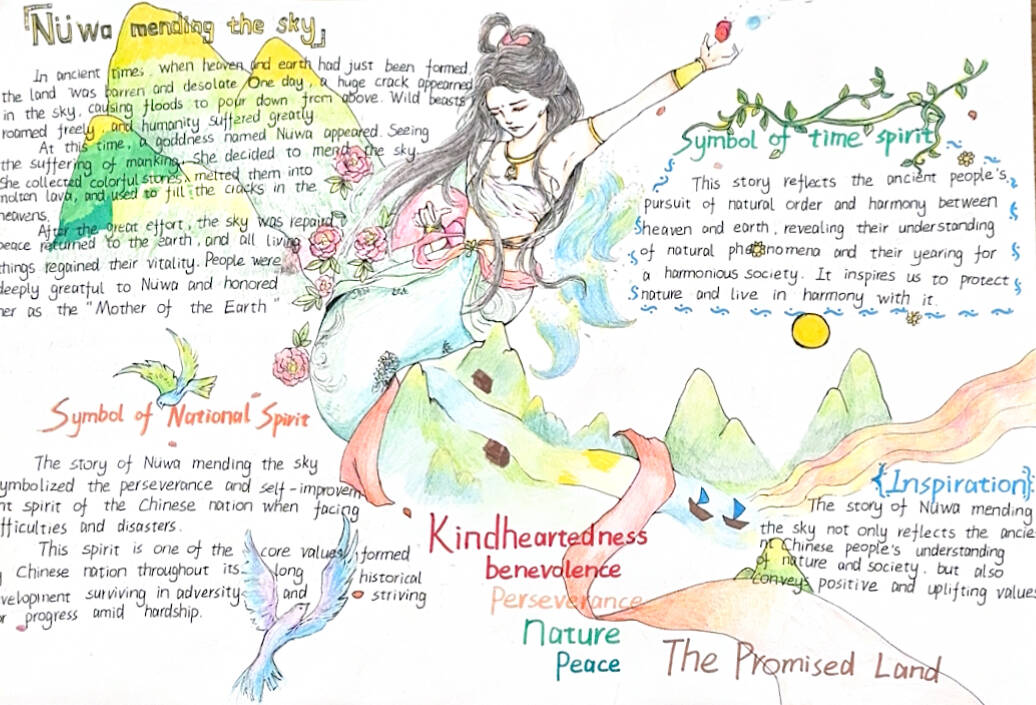 『Nüwa mending the sky』
In ancient times, when heaven and earth had just been formed,
the land was barren and desolate. One day, a huge crack appearned
in the sky, causing floods to pour down from above. Wild beasts
roamed freely, and humanity suffered greatly.
At this time, a goddness named Nüwa appeared. Seeing
the suffering of manking, she decided to mend the sky.
She collected colorful stones, melted them into
molten lava, and used to fill the cracks in the
heavens.
After the great effort, the sky was repaird
peace returned to the earth, and all living
things regained their vitality. People were
deeply greatful to Nüwa and honored
her as the "Mother of the Earth"
Symbol of time spirit
This story reflects the ancient people's
pursuit of natural order and harmony between
heaven and earth, revealing their understanding
of natural phenomena and their yearing for
a harmonious society. It inspires us to protect
nature and live in harmony with it.
Symbol of National Spirit
The story of Nüwa mending the sky
symbolized the perseverance and self-improvem-
nt spirit of the Chinese nation when facing
fficulties and disasters.
This spirit is one of the core values formed
Chinese nation throughout its long historical
velopment surviving in adversity and striving
or progress amid hardship.
Kindheartedness
benevolence
Perseverance
Nature
Peace
{Inspiration}
The story of Nüwa mending
the sky not only reflects the ancie-
nt Chinese people's understanding
of nature and society, but also
conveys positive and uplifting values
The Promised Land